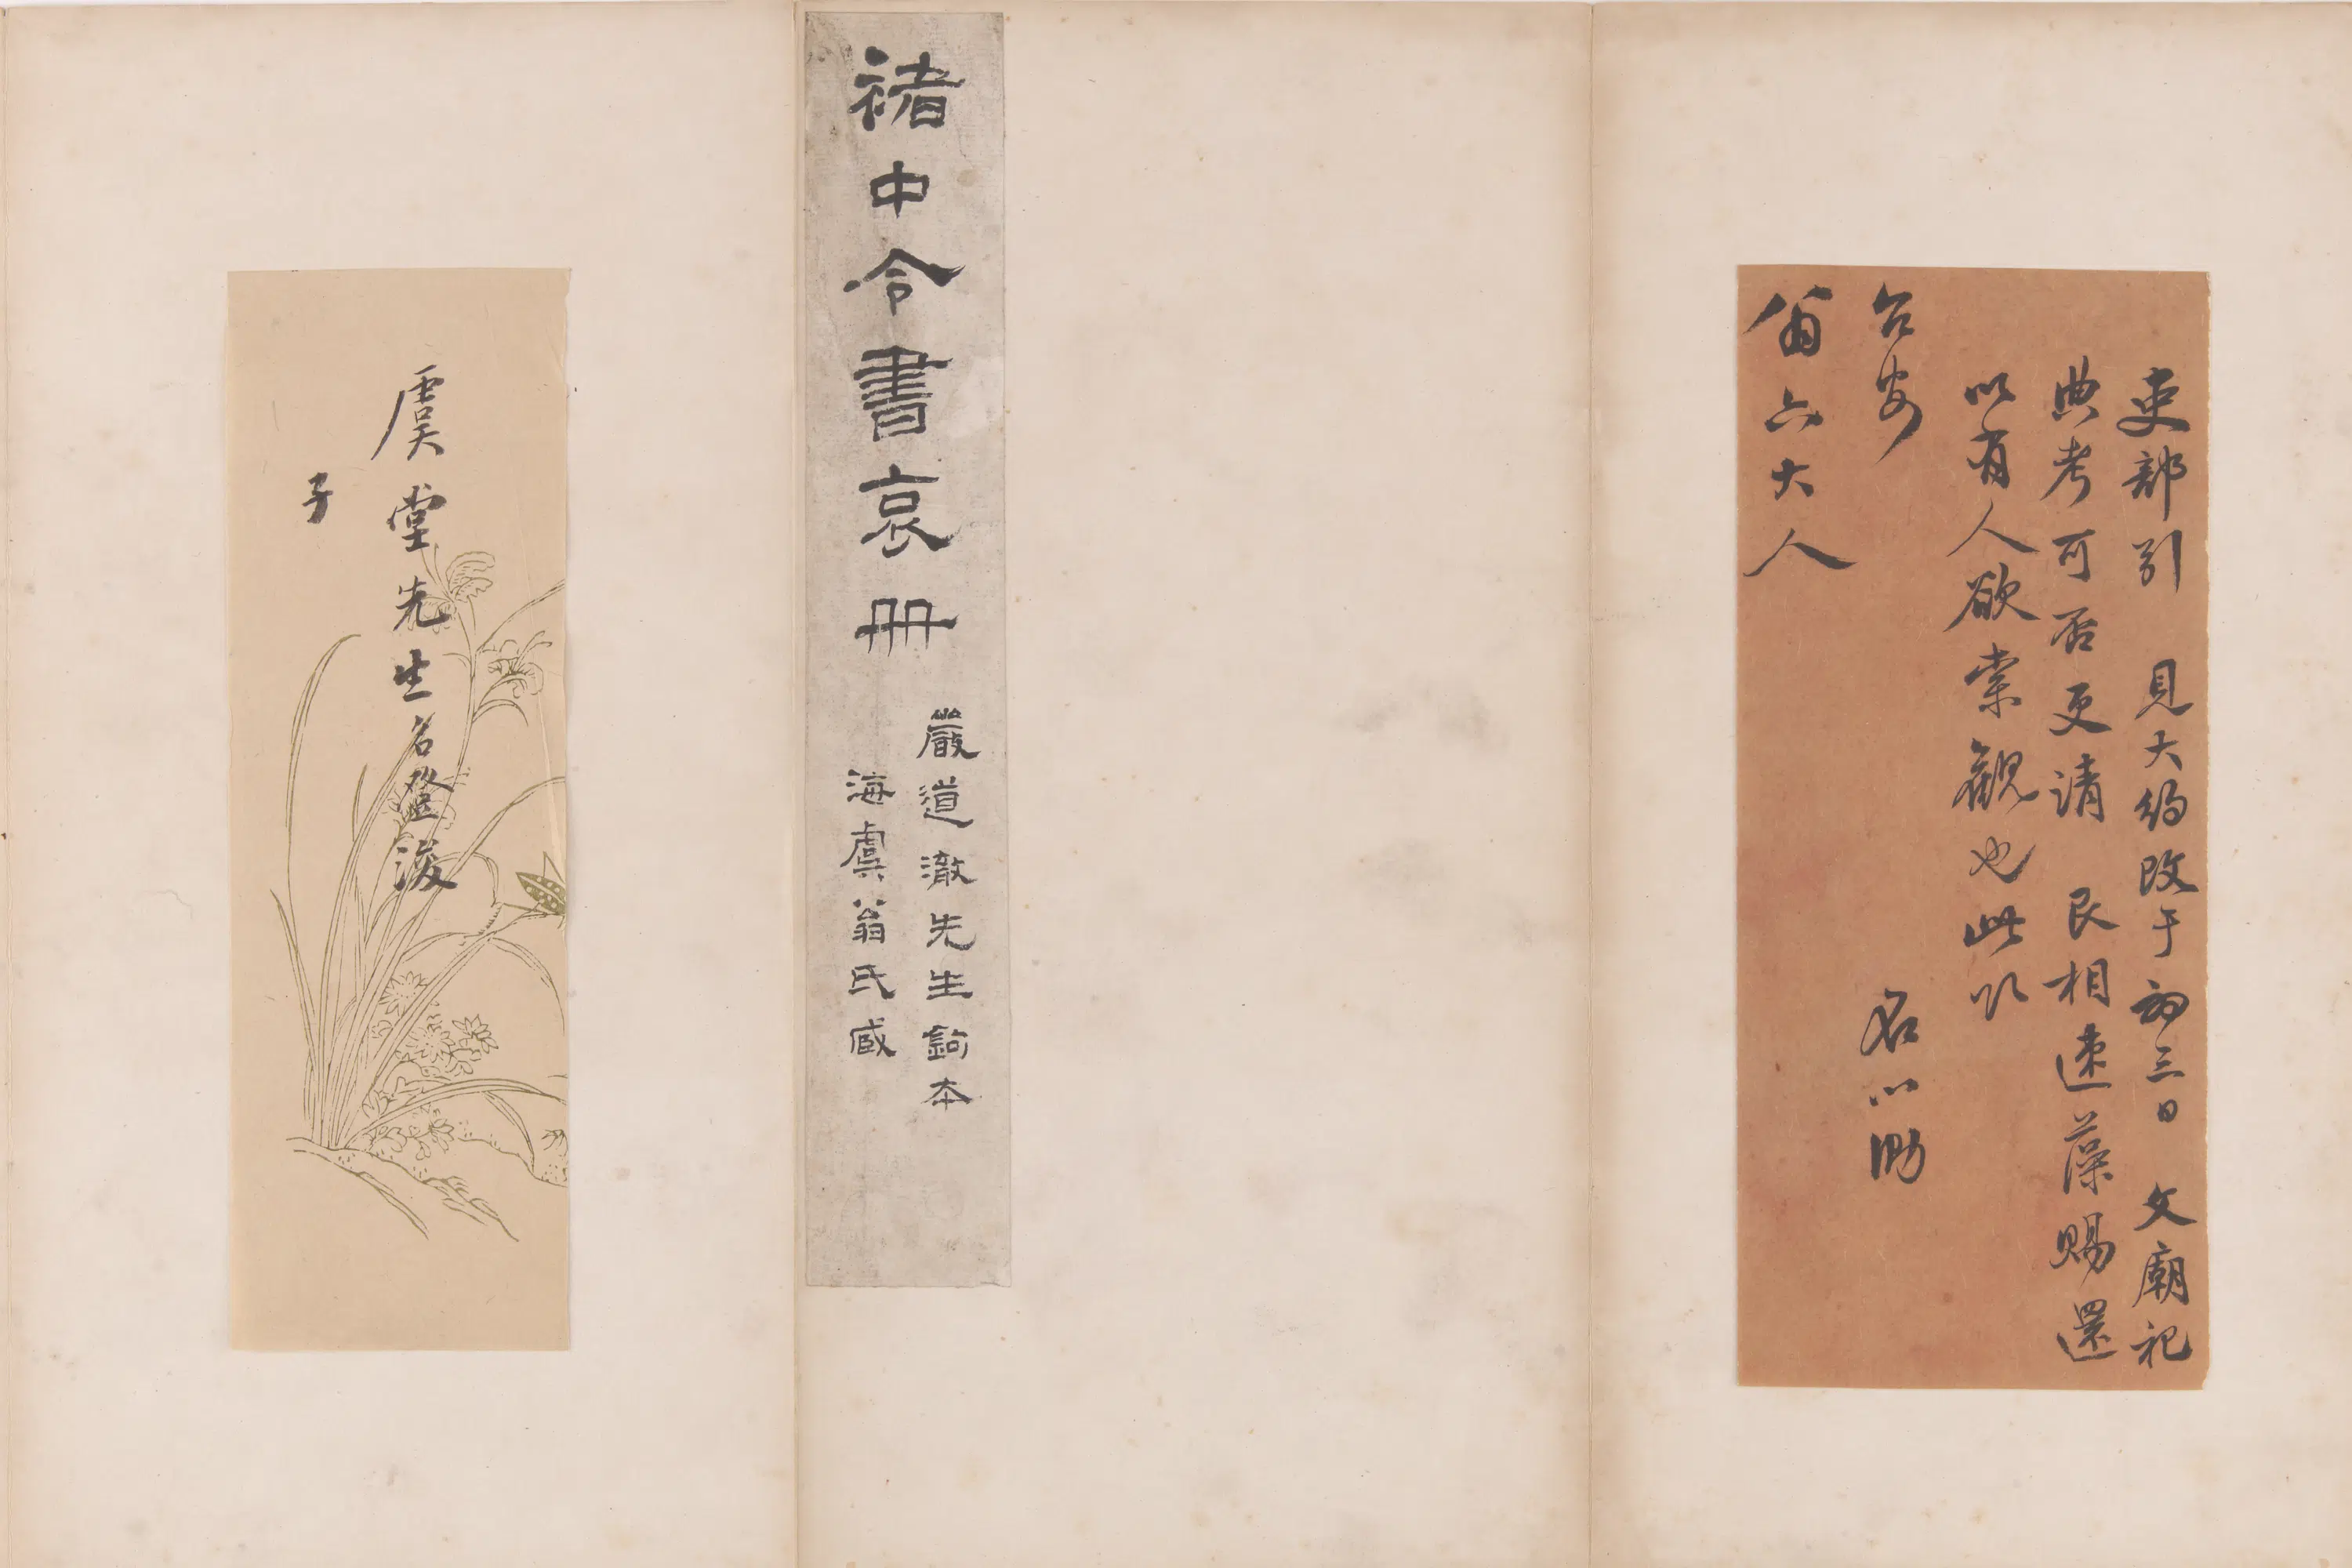 吏部引　見大約改于初三日　文廟祀
典考可否更請　艮相速藻賜還
以有人欲索觀也此以
台安　名心泐
六大人
褚中令書哀冊
嚴道澈先生鉤本
海虞翁氏臧
虞堂先生名登浚
子